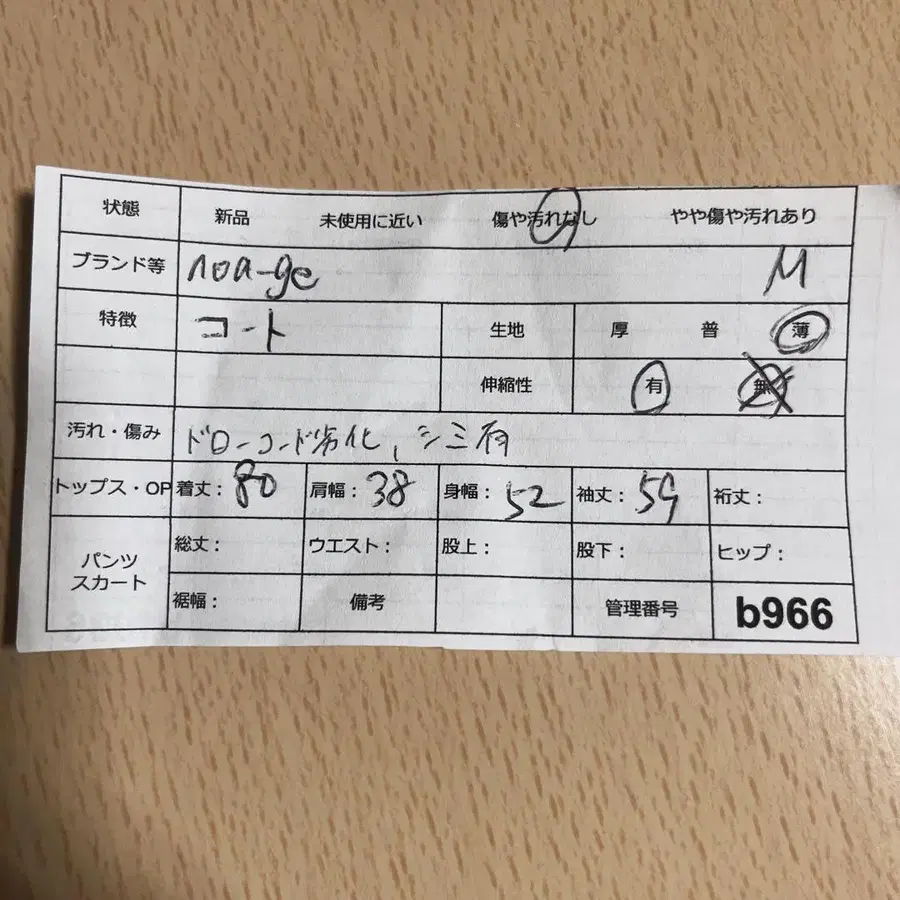 状態 新品 未使用に近い 傷や汚れなし やや傷や汚れあり
ブランド等 noa-ge M
特徴 コート 生地 厚 普 薄
伸縮性 有 無
汚れ・傷み ドローコード劣化、シミ有
トップス・OP 着丈: 80 肩幅: 38 身幅: 52 袖丈: 59 裄丈:
パンツ スカート 総丈: ウエスト: 股上: 股下: ヒップ:
裾幅: 備考 管理番号 b966